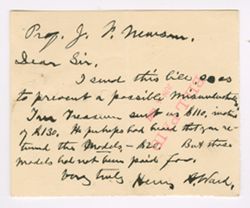 Prof. J. F. Newsom.
Dear Sir,
I send this bill so as
to prevent a possible misunderstanding.
Your Treasurer sent us $110. instead
of $130. He perhaps had heard that you re-
turned the Models — $20. But these
models had not been paid for.
Very truly Henry A. Ward.